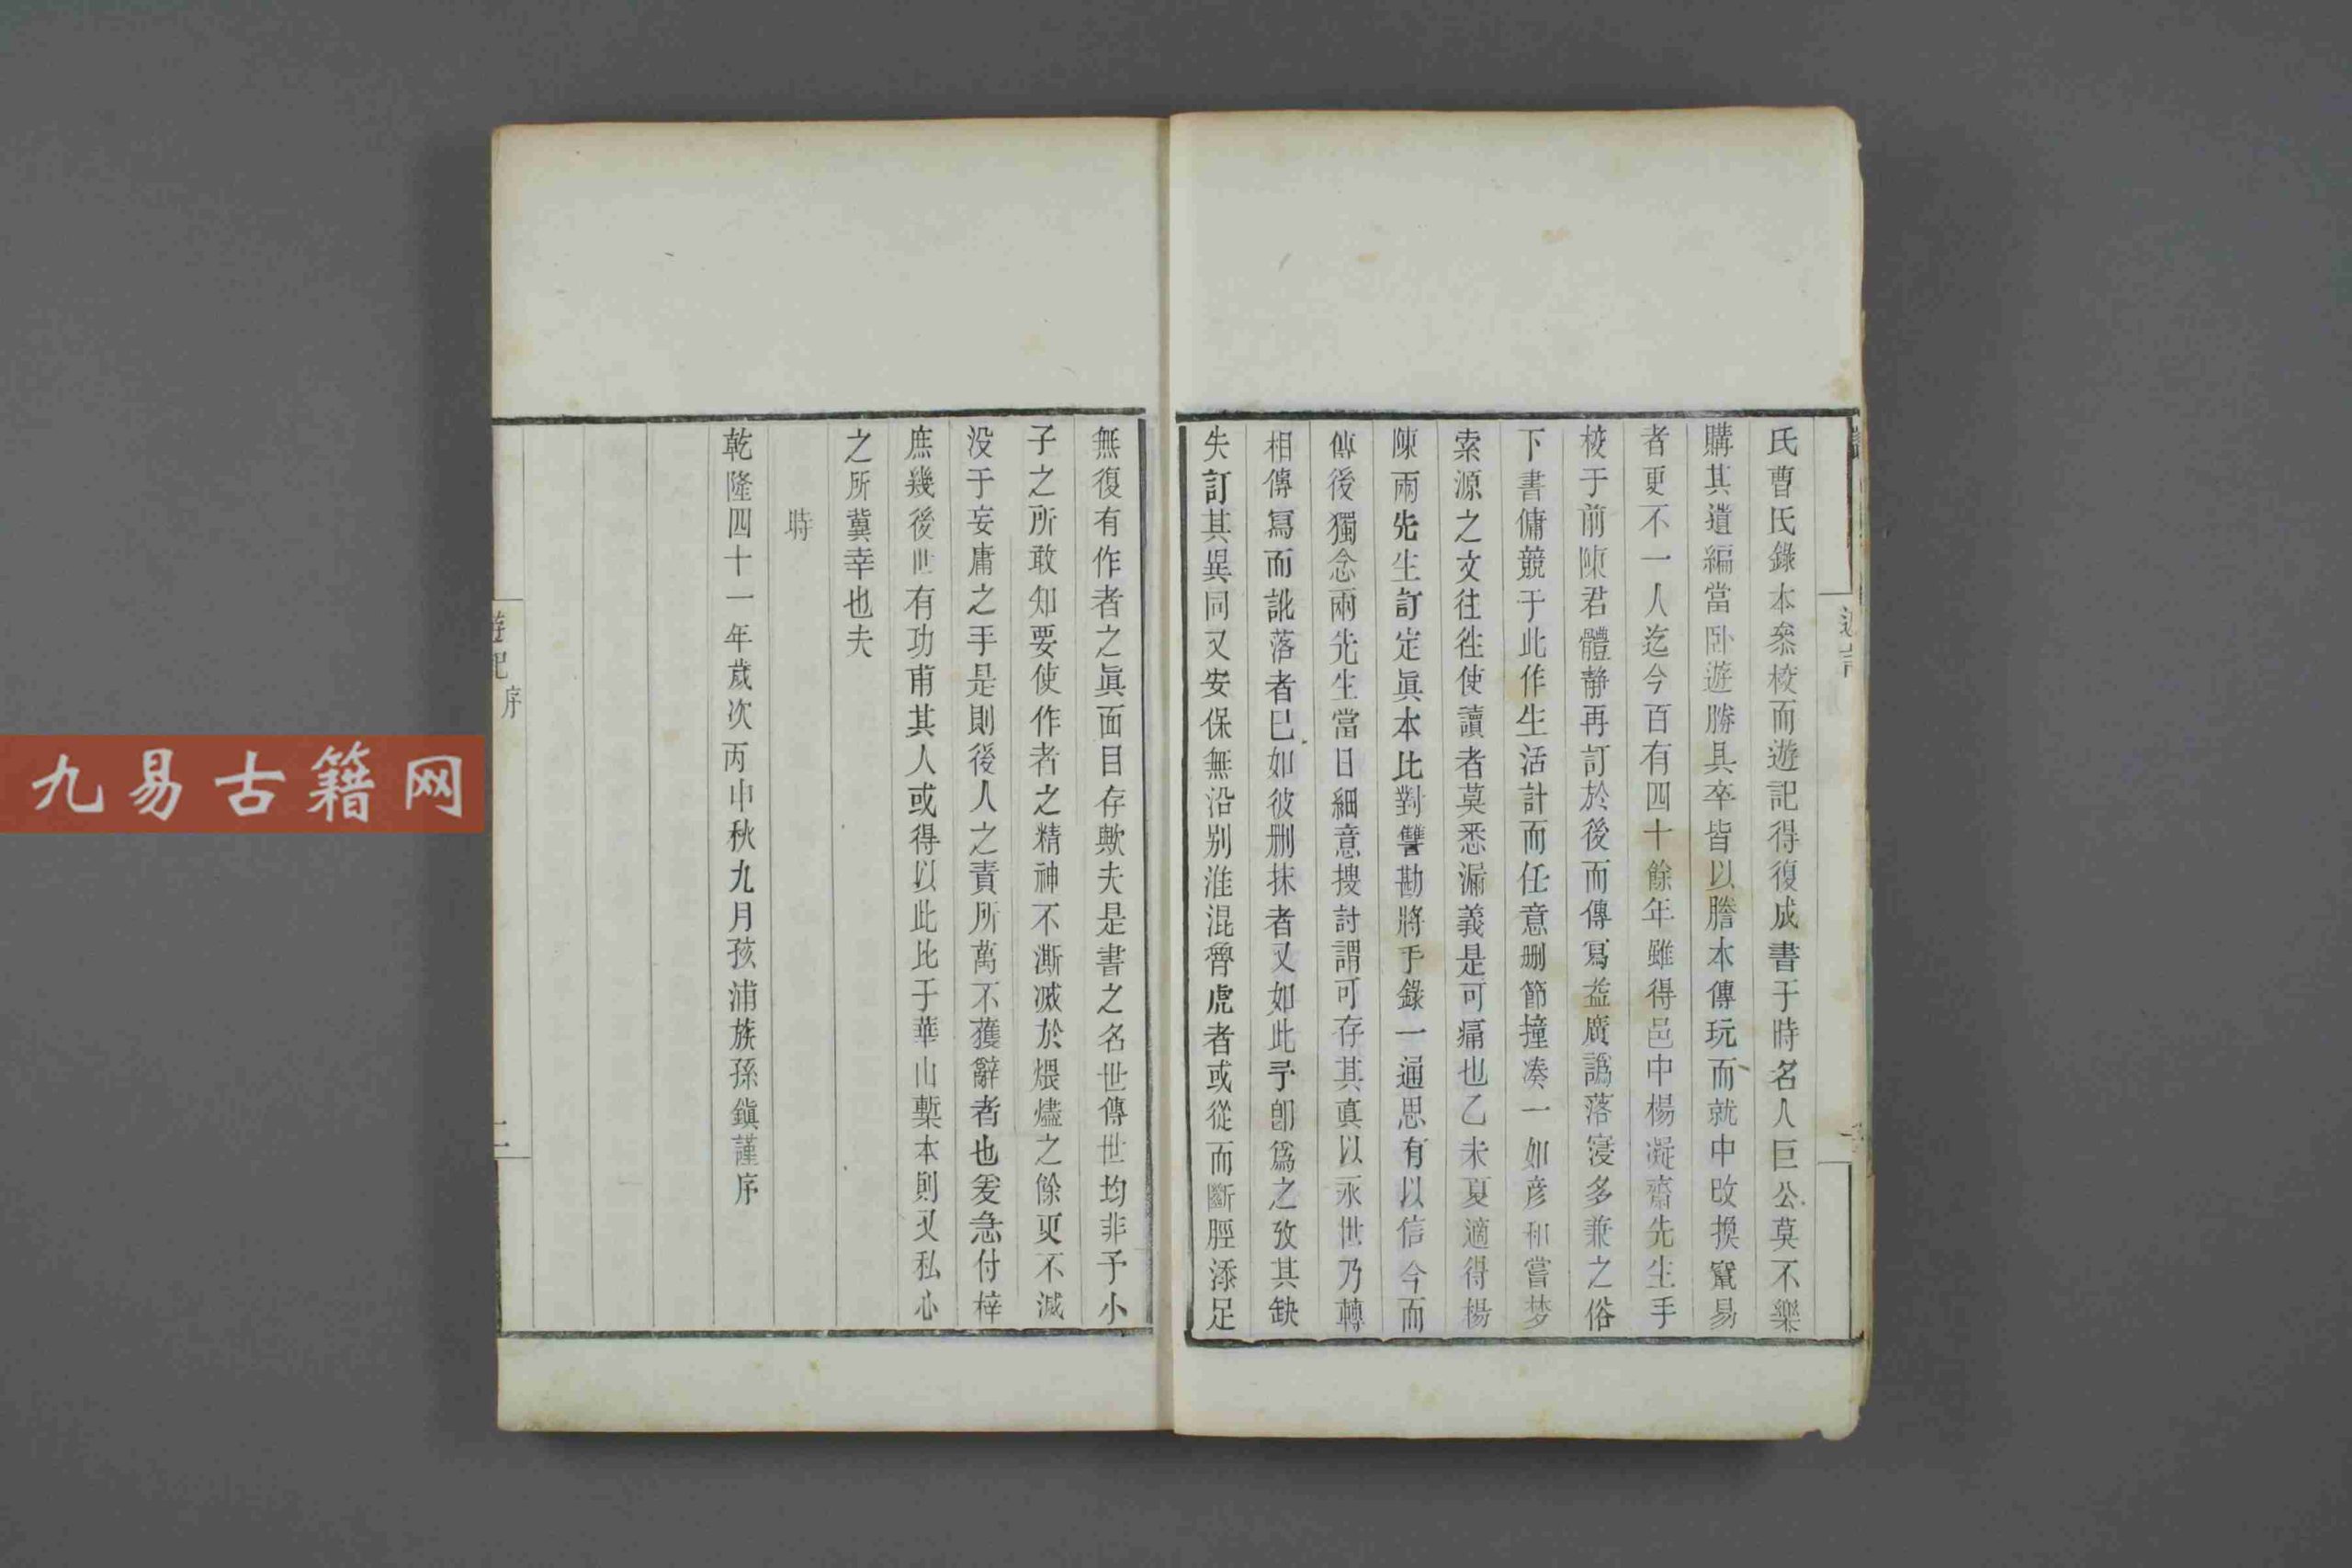 氏曹氏錄本叅校而遊記得復成書于時名人巨公莫不樂
購其遺編當卧遊勝具卒皆以謄本傳玩而就中改換竄易
者更不一人迄今百有四十餘年雖得邑中楊凝齋先生手
校于前陳君體靜再訂於後而傳寫益廣譌落寖多兼之俗
下書傭競于此作生活計而任意刪節撞凑一如彦和嘗梦
索源之文往徃使讀者莫悉漏義是可痛也乙未夏適得楊
陳兩先生訂定眞本比對讐勘將手錄一通思有以信今而
傳後獨念兩先生當日細意搜討謂可存其真以永世乃轉
相傳寫而訛落者已如彼刪抹者又如此予卽爲之攷其缺
失訂其異同又安保無沿别淮混脅虎者或從而斷脛添足
無復有作者之眞面目存歟夫是書之名世傳世均非予小
子之所敢知要使作者之精神不澌滅於煨燼之餘更不減
没于妄庸之手是則後人之責所萬不獲辭者也爰急付梓
庶幾後世有功甫其人或得以此比于華山槧本則又私心
之所冀幸也夫
時
乾隆四十一年歲次丙申秋九月孩浦族孫鎭謹序
遊記
序
二
九易古籍网